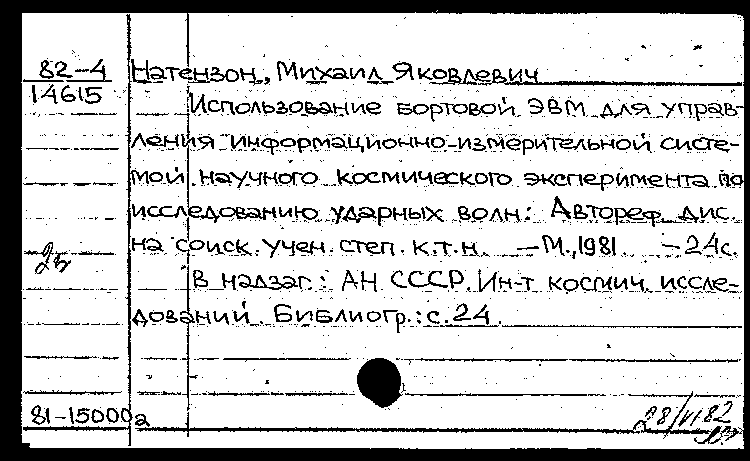 82-4 Натензон, Михаил Яковлевич
14615
Использование бортовой ЭВМ для управ-
ления информационно-измерительной систе-
мой научного космического эксперимента по
исследованию ударных волн: Автореф. дис.
на соиск. учен. степ. к.т.н. — М., 1981. — 24с.
В надзаг.: АН СССР. Ин-т космич. иссле-
дований. Библиогр.: с. 24.
81-15000а
28/VI 82